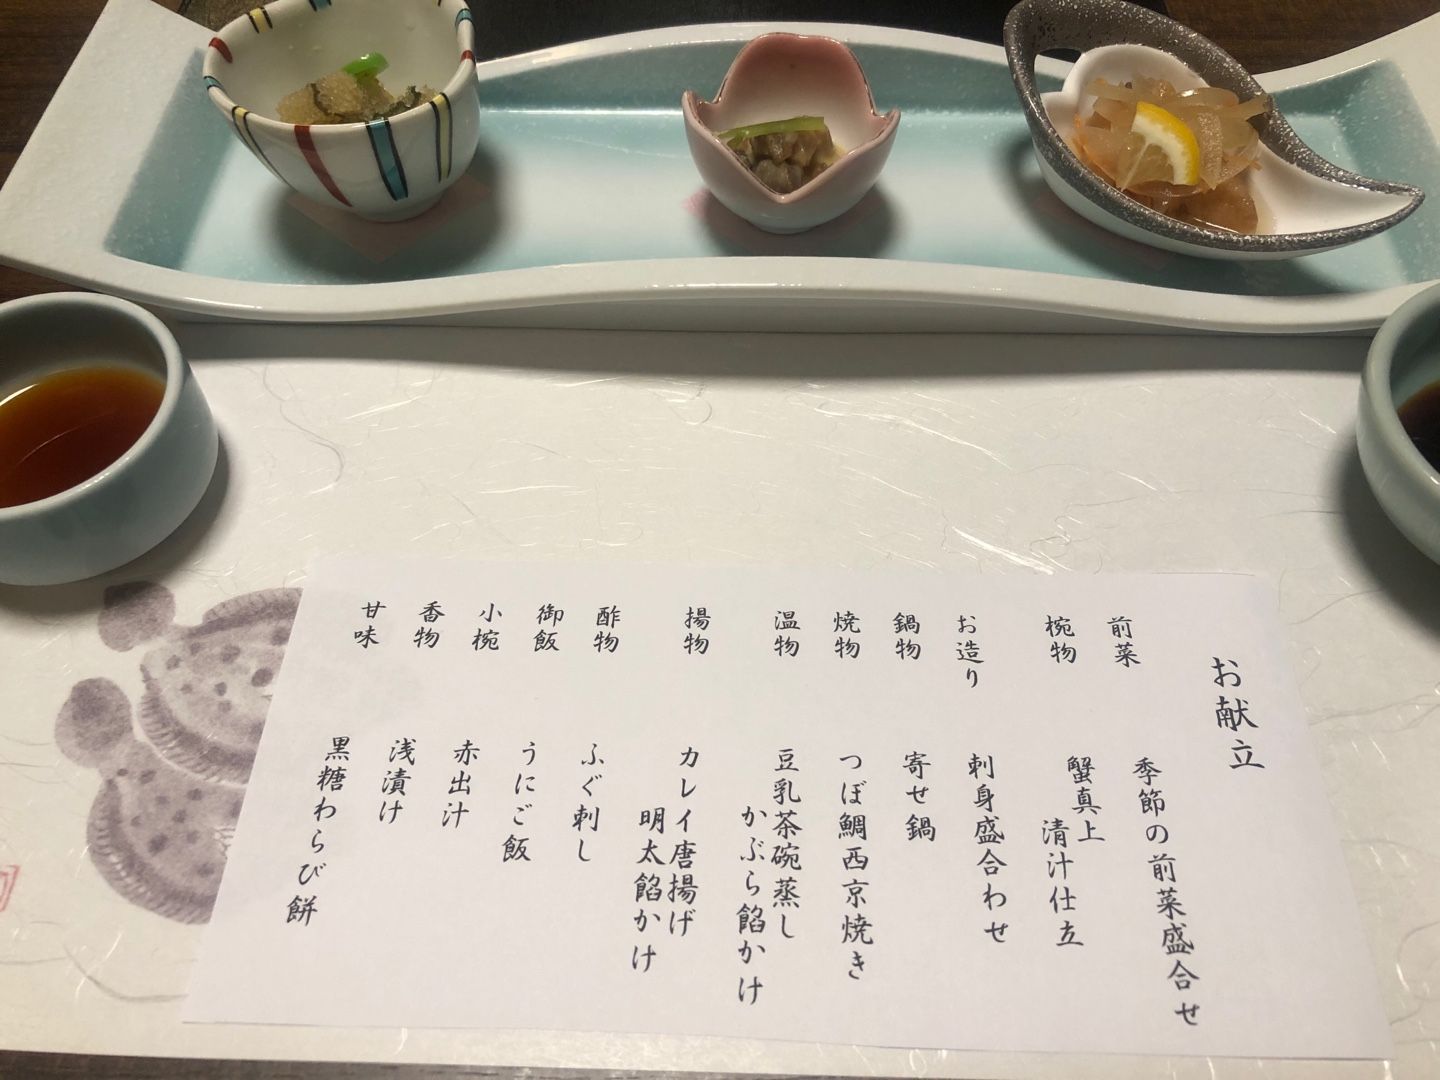 お献立
前菜 季節の前菜盛合せ
椀物 蟹真上
清汁仕立
お造り 刺身盛合わせ
鍋物 寄せ鍋
焼物 つぼ鯛西京焼き
温物 豆乳茶碗蒸し
かぶら餡かけ
揚物 カレイ唐揚げ
明太餡かけ
酢物 ふぐ刺し
御飯 うにご飯
小椀 赤出汁
香物 浅漬け
甘味 黒糖わらび餅